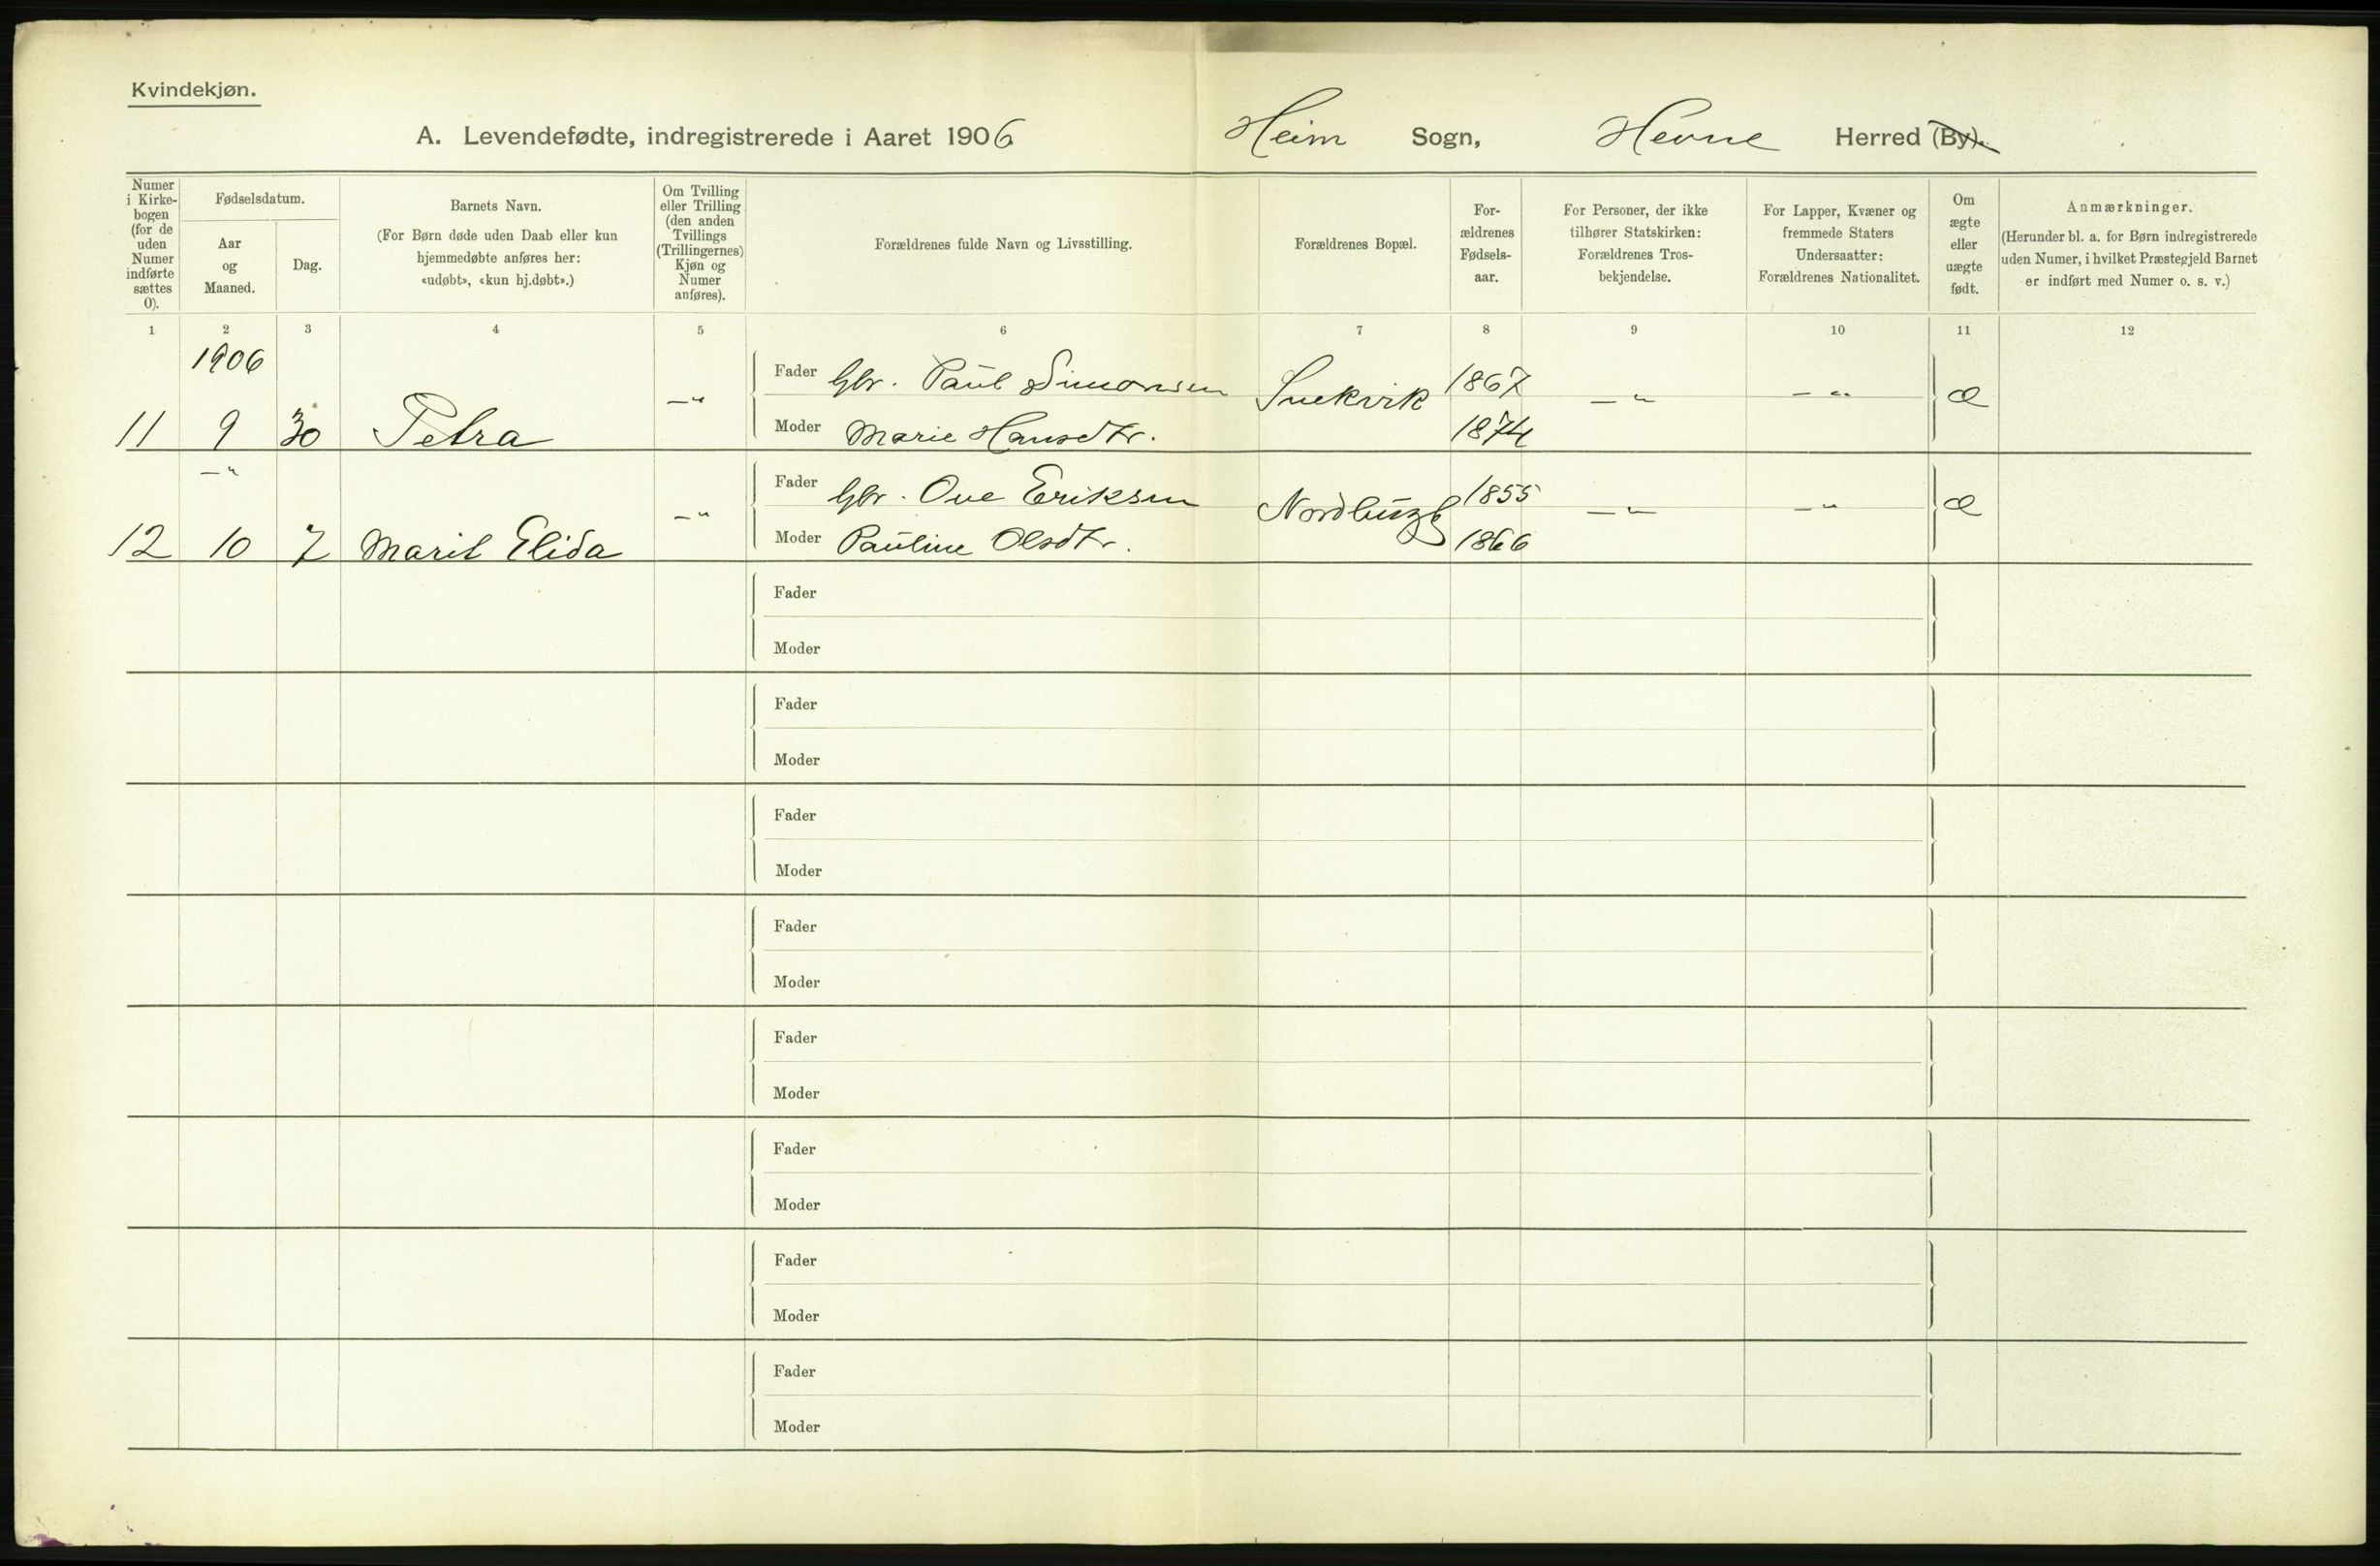 Kvindekjøn.
A. Levendefødte, indregistrerede i Aaret 1906 Heim Sogn, Hevne Herred (By).
Numer i Kirke-bogen (for de uden Numer indførte sættes 0).
Fødselsdatum.
Aar og Maaned.
Dag.
Barnets Navn.
(For Børn døde uden Daab eller kun
hjemmedøbte anføres her:
«udøbt», «kun hj.døbt».)
Om Tvilling
eller Trilling
(den anden
Tvillings
(Trillingernes)
Kjøn og
Numer
anføres).
Forældrenes fulde Navn og Livsstilling.
Forældrenes Bopæl.
For-
ældrenes
Fødsels-
aar.
For Personer, der ikke
tilhører Statskirken:
Forældrenes Tros-
bekjendelse.
For Lapper, Kvæner og
fremmede Staters
Undersaatter:
Forældrenes Nationalitet.
Om
ægte
eller
uægte
født.
Anmærkninger.
(Herunder bl. a. for Børn indregistrerede
uden Numer, i hvilket Præstegjeld Barnet
er indført med Numer o. s. v.)
1 2 3 4 5 6 7 8 9 10 11 12
1906
Fader Gbr. Paul Simonsen Snekvik 1867
11 9 30 Petra —„ — „ — „ æ
Moder Marie Hansdtr. 1874
—„
Fader Gbr. Ove Eriksen 1855
12 10 7 Marit Elida —„ — „ — „ æ
Moder Pauline Olsdtr. 1866
Fader
Moder
Fader
Moder
Fader
Moder
Fader
Moder
Fader
Moder
Fader
Moder
Fader
Moder
Fader
Moder